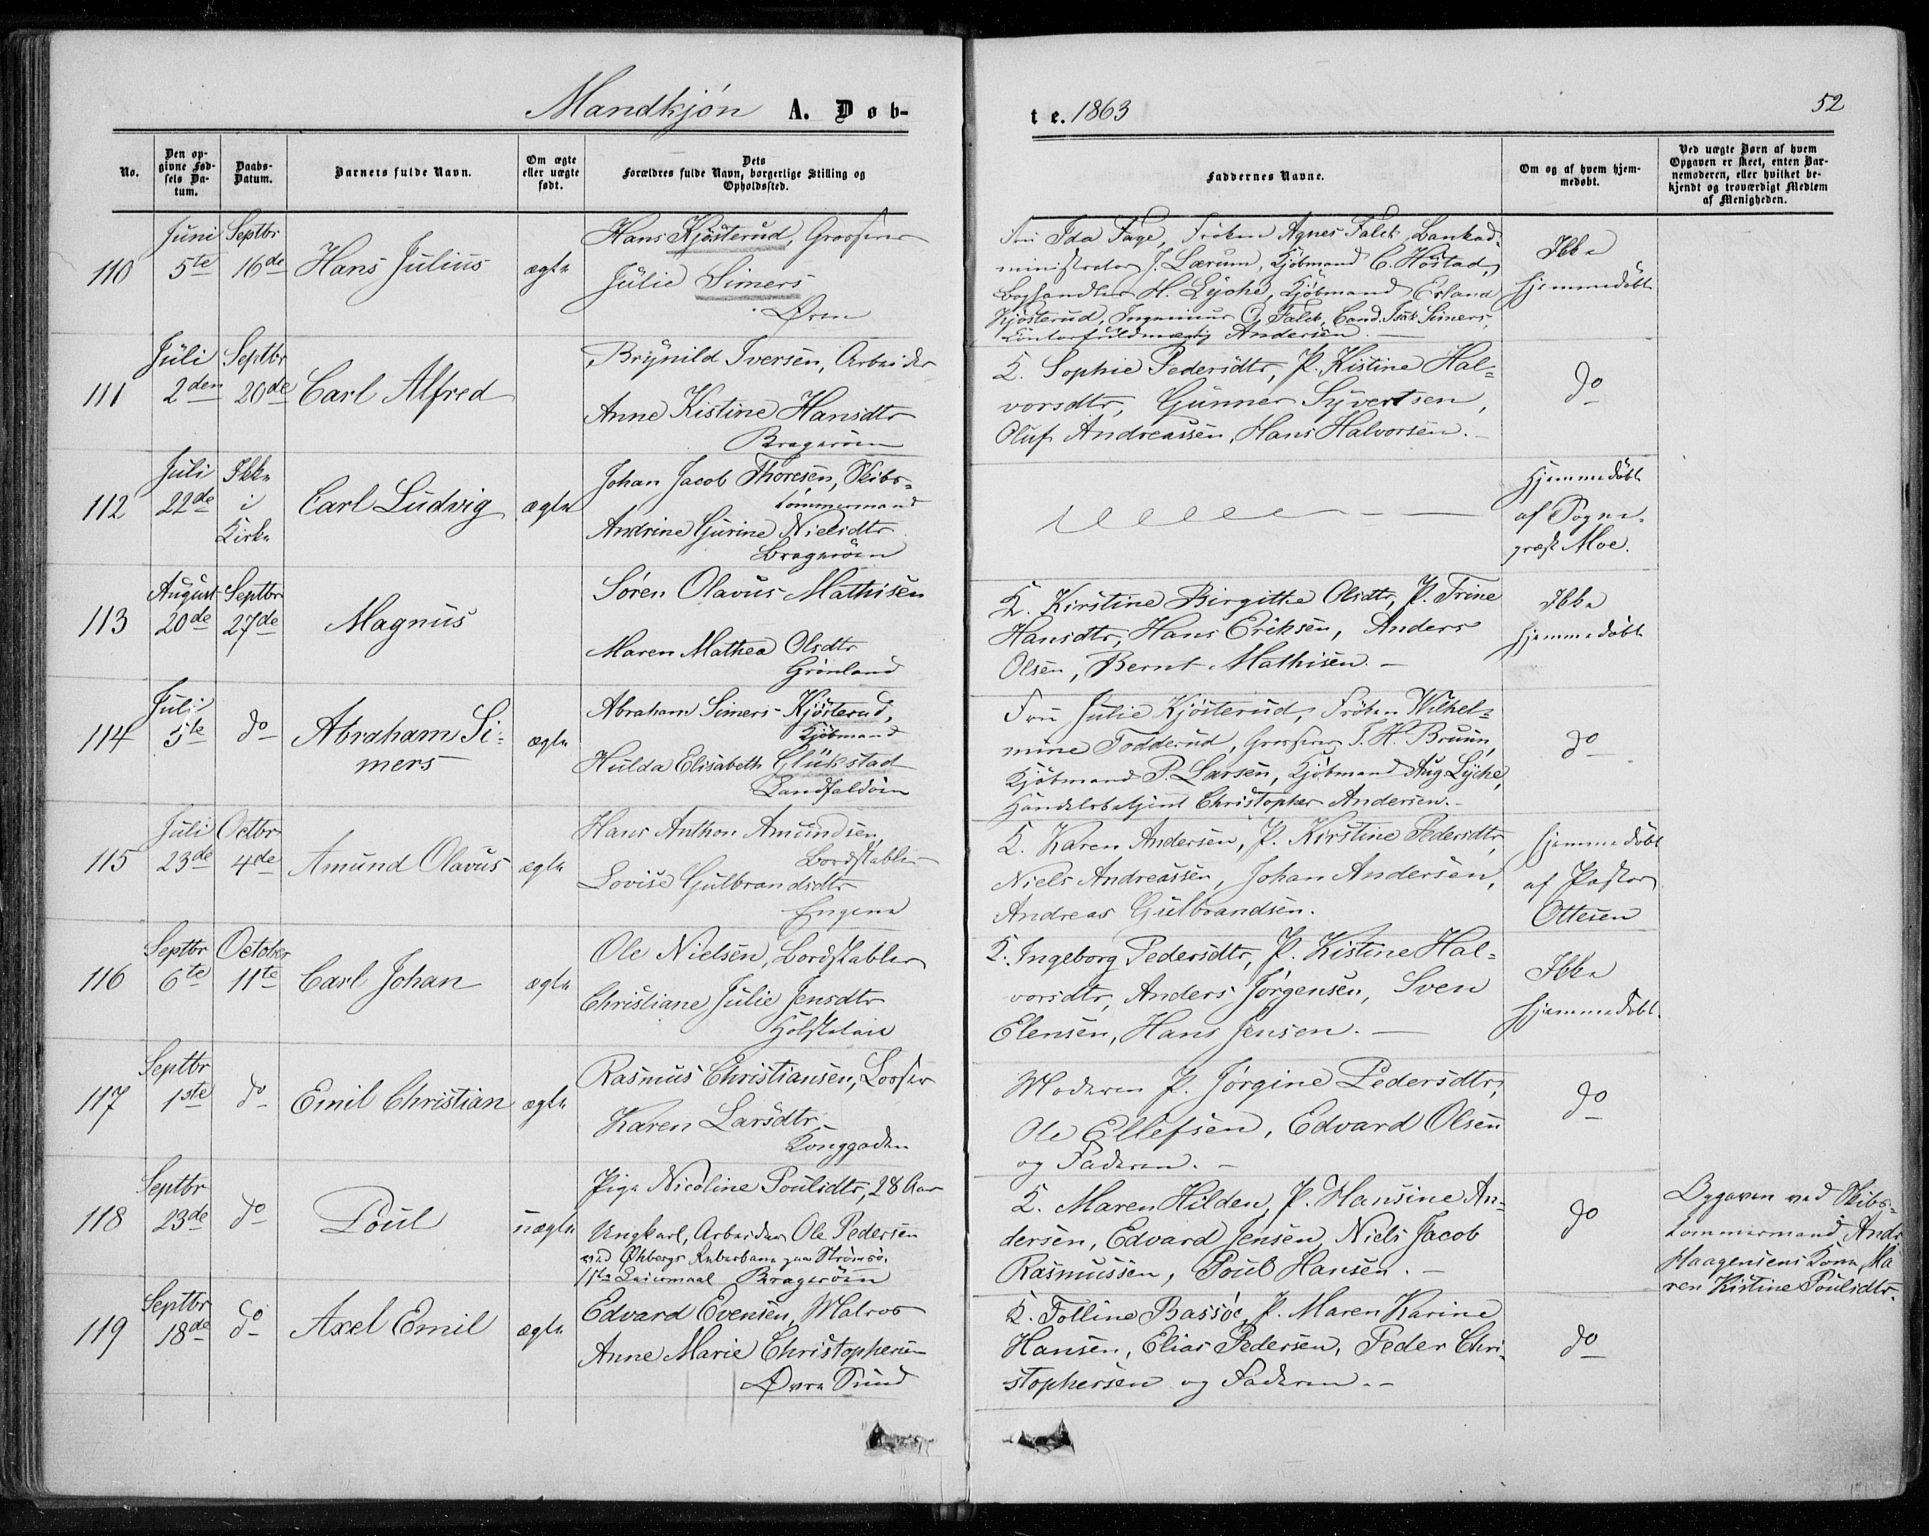 Mandkjøn A. Døb-
te. 1863
52
No.
Den op-
givne Fød-
sels Da-
tum.
Daabs-
Datum.
Barnets fulde Navn.
Om ægte
eller uægte
født.
Dets
Forældres fulde Navn, borgerlige Stilling og
Opholdssted.
Faddernes Navne.
Om og af hvem hjem-
medøbt.
Ved uægte Børn af hvem
Opgaven er skeet, enten Bar-
nemoderen, eller hvilket be-
kjendt og troværdigt Medlem
af Menigheden.
110
Juni
5te
Septbr
16de
Hans Julius
ægte
Hans Kjøsterud, Grosserer
Julie Simers
Øren
Fru Ida Fage, Frøken Agnes Falck, Bankad-
ministrator J. Lærum, Kjøbmand C. Høstad,
Boghandler H. Lyche, Kjøbmand Erland
Kjøsterud, Ingeniør C. Falck, Cand. Isak Simers,
Contorfuldmægtig Andersen.
Ikke
hjemmedøbt
111
Juli
2den
Septbr
20de
Carl Alfred
Brynild Iversen, Arbeider
Anne Kistine Hansdtr
Bragerøen
K. Sophie Pedersdtr, P. Kistine Hal-
vorsdtr, Gunner Syvertsen,
Oluf Andreassen, Hans Halvorsen.
do
112
Juli
22de
Ikke
i
Kirke
Carl Ludvig
ægte
Johan Jacob Thoresen, Skibs-
tømmermand
Andrine Gurine Nielsdtr
Bragerøen
Hjemmedøbt
af Sogne-
præst Moe.
113
August
20de
Septbr
27de
Magnus
Søren Olavus Mathisen
Maren Mathea Olsdtr
Grønland
K. Kirstine Birgitthe Olsdtr, P. Trine
Hansdtr, Hans Eriksen, Anders
Olsen, Bernt Mathisen.
Ikke
hjemmedøbt
114
Juli
5te
do
Abraham Si-
mers
ægte
Abraham Simers Kjøsterud,
Kjøbmand
Hulda Elisabeth Glükstad
Landfaldøen
Fru Julie Kjøsterud, Frøken Wilhel-
mine Todderud, Grosserer J. H. Bruun,
Kjøbmand P. Larsen, Kjøbmand Aug. Lyche,
Handelsbetjent Christopher Andersen.
do
115
Juli
23de
Octbr
4de
Amund Olavus
ægte
Hans Anthon Amundsen,
Bordstabler
Lovise Gulbrandsdtr
Engene
K. Karen Andersen, P. Kirstine Pedersdtr,
Niels Andreassen, Johan Andersen,
Andreas Gulbrandsen.
hjemmedøbt
af Pastor
Ottesen
116
Septbr
6te
October
11te
Carl Johan
ægte
Ole Nielsen, Bordstabler
Christiane Julie Jensdtr
K. Ingeborg Pedersdtr, P. Kistine Hal-
vorsdtr, Anders Jørgensen, Sven
Elensen, Hans Jensen.
Ikke
hjemmedøbt.
117
Septbr
1ste
do
Emil Christian
ægte
Rasmus Christiansen, Losser
Karen Larsdtr
Konggaden
Moderen P. Jørgine Pedersdtr,
Ole Ellefsen, Edvard Olsen
og Faderen.
do
118
Septbr
23de
do
Poul
uægte
Pige Nicoline Poulsdtr, 28 Aar
Ungkarl, Arbeider Ole Pedersen
ved Økbergs Reberbane paa Strømsø.
11te Leiermaal Bragerøen
K. Maren Hilden, P. Hansine An-
dersen, Edvard Jensen, Niels Jacob
Rasmussen, Poul Hansen.
do
Opgaven ved Skibs-
tømmermand Andr.
Haagensens Kone, Ma
ren Kistine Poulsdtr.
119
Septbr
18de
do
Axel Emil
ægte
Edvard Evensen, Matros
Anne Marie Christophersen
Øvre Sund
K. Tolline Bassøe, P. Maren Karine
Hansen, Elias Pedersen, Peder Chri-
stophersen og Faderen.
do